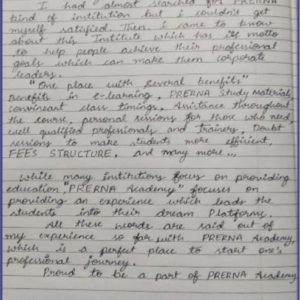 I had almost searched for PRERNA
kind of institution but i couldn't get
myself satisfied. Then i came to know
about this Institute which has its motto
to help people achieve their professional
goals which can make them corporate
leaders.
"One place with several benefits"
Benefits in learning, PRERNA Study Material,
convinient class timings, Assistance throughout
the course, personal sessions for those who need,
well qualified professionals and Trainers, Doubt
sessions to make students more efficient,
FEES STRUCTURE, and many more...
While many Institutions focus on providing
education "PRERNA Academy" focuses on
providing an experience which leads the
students into their dream Platforms.
All these words are said out of
my experience so far with PRERNA Academy
which is a perfect place to start one's
professional journey.
Proud to be a part of PRERNA Academy